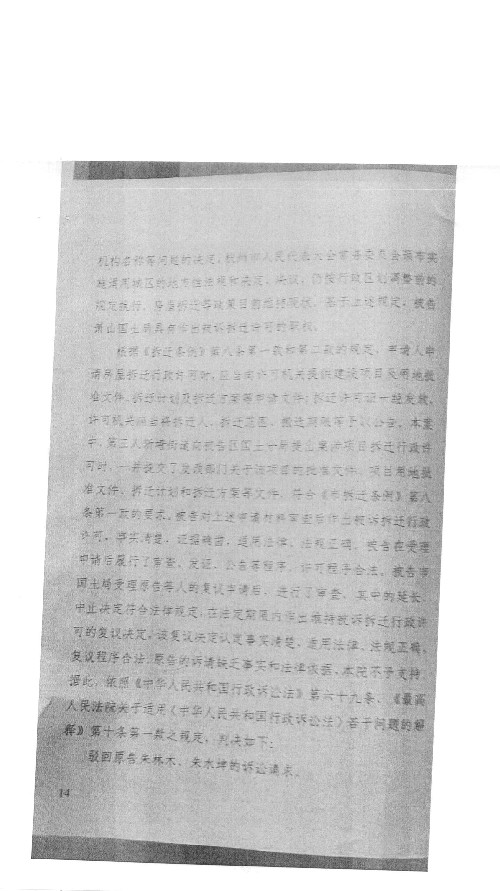 机构名称等问题的决定，杭州市人民代表大会常务委员会颁布实
施适用城区的地方性法规和决定、决议，仍按行政区划调整前的
规定执行，房屋拆迁等政策目前维持现状。基于上述规定，被告
萧山国土局具有作出被诉拆迁许可的职权。
根据《拆迁条例》第八条第一款和第二款的规定，申请人申
请房屋拆迁行政许可时，应当向许可机关提供建设项目及用地批
准文件、拆迁计划及拆迁方案等申请文件；拆迁许可证一经发放，
许可机关应当将拆迁人、拆迁范围、搬迁期限等予以公告。本案
中，第三人新塘街道向被告区国土局提出案涉项目拆迁行政许
可时，一并提交了发改部门关于该项目的批准文件、项目用地批
准文件、拆迁计划和拆迁方案等文件，符合《市拆迁条例》第八
条第一款的要求。被告对上述申请材料审查后作出被诉拆迁行政
许可，事实清楚，证据确凿，适用法律、法规正确。被告在受理
申请后履行了审查、发证、公告等程序，许可程序合法。被告市
国土局受理原告等人的复议申请后，进行了审查，其中的延长、
中止决定符合法律规定，在法定期限内作出维持被诉拆迁行政许
可的复议决定，该复议决定认定事实清楚，适用法律、法规正确，
复议程序合法。原告的诉请缺乏事实和法律依据，本院不予支持。
据此，依照《中华人民共和国行政诉讼法》第六十九条、《最高
人民法院关于适用〈中华人民共和国行政诉讼法〉若干问题的解
释》第十条第一款之规定，判决如下：
驳回原告朱林木、朱水坤的诉讼请求。
14